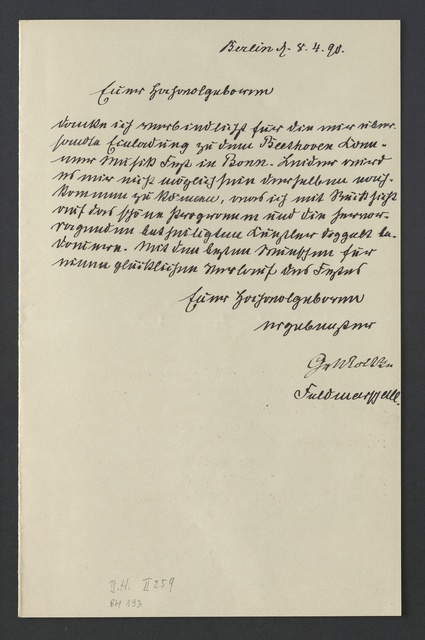 Berlin d. 8.4.90.
Euer Hochwolgeboren
danke ich verbindlichst für die mir über-
sandte Einladung zu dem Beethoven Kam-
mer Musik Fest in Bonn. Leider wird
es mir nicht möglich sein derselben nach-
kommen zu können, was ich mit Rücksicht
auf das schöne Programm und die hervor-
ragenden betheiligten Künstler doppelt be-
dauere. Mit den besten Wünschen für
einen glücklichen Verlauf des Festes
Euer Hochwolgeboren
ergebenster
Gr Moltke
Feldmarschall.
B.H. II 259
BH 193